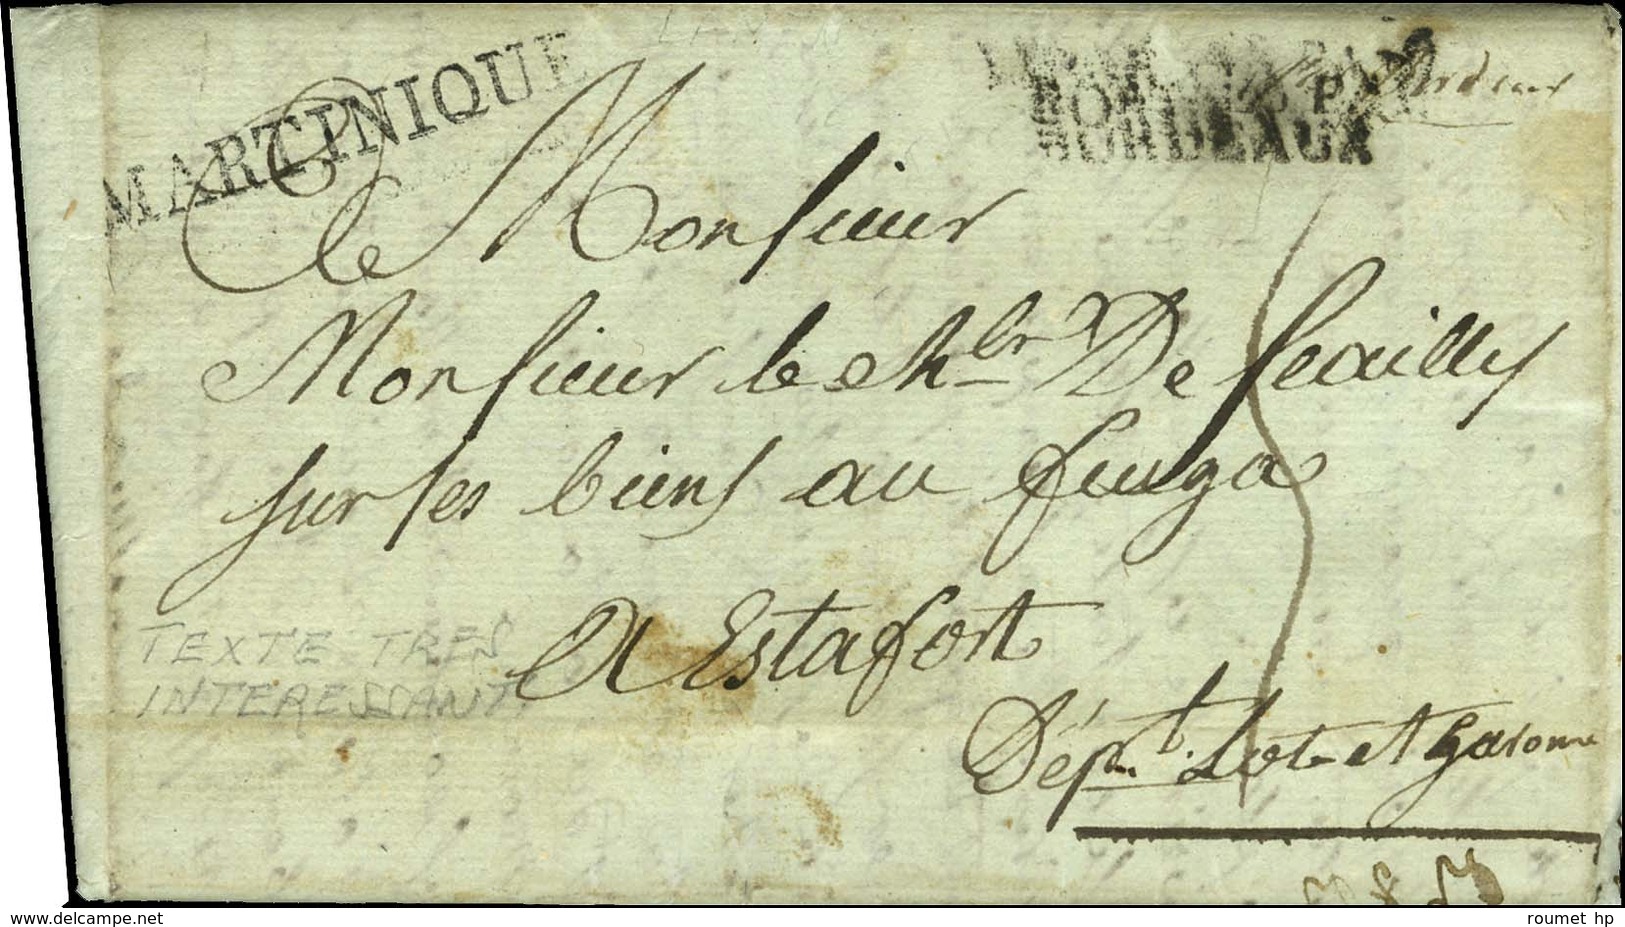 MARTINIQUE
BORDEAUX
A Monsieur
Monsieur le Chler De feuilly
sur ses biens au
A Estafort
Dépt. Lot et Garonne
TEXTE TRES
INTERESSANT
www.delcampe.net
roumet hp